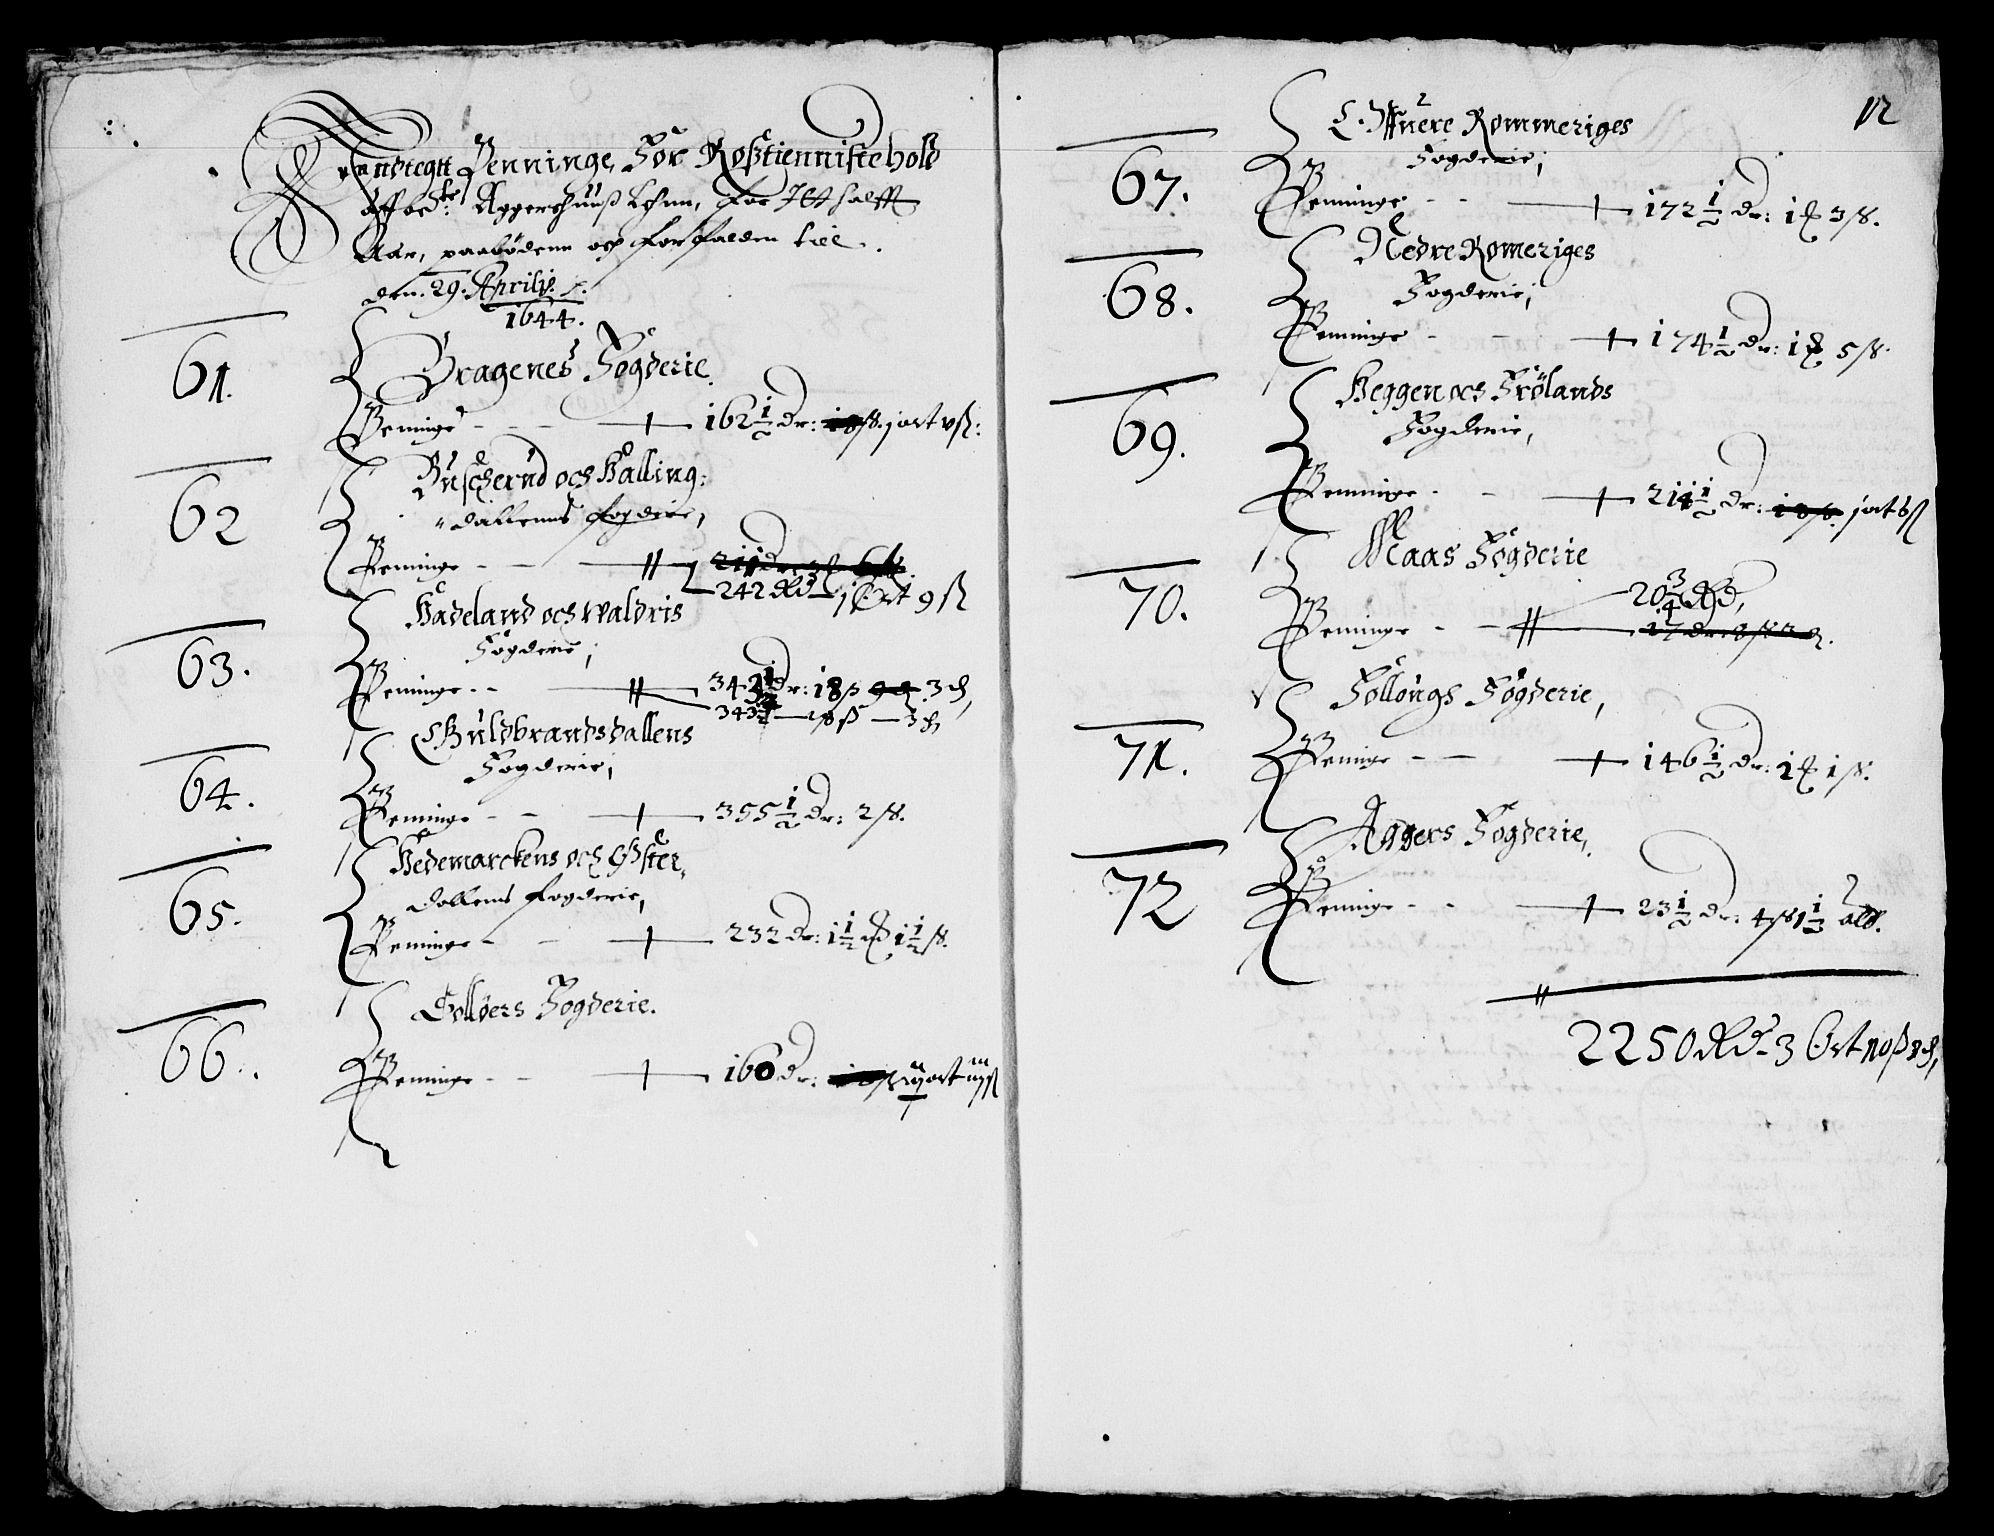 Anndtegtt Penninge, For Roßtiennistehold
aff be:te Aggershuuß Lehnn, for Itt halfft
Aar, paabödenn och forfalden till.
den. 29. Aprilis.
1644.
61.
Bragenes Fogderie.
Penninge - - - 162 1/2 dr: j ort vß:
62
Buscherud och Halling:
dallenns fogderie,
Penninge - - 211 dr
242 Rd j Ort 9 ß
63.
Hadeland och Waldris
Fogderie;
Penninge - - 342 dr: 18 ß 3 ₰,
343 1/2 - 18 ß - 3 ₰
64.
Guldbrandsdallens
Fogderie;
Penninge - - 355 1/2 dr: 2 ß.
65.
Hedemarckens och Öster,
dallenns fogderie,
Penninge - - 232 dr: 1 1/2 ₰ 1 1/2 ß.
66.
Tollöers Fogderie.
Penninge - - 160 dr: ort ß
12
67.
Öffuere Rommeriges
Fogderie;
Penninge - - 172 1/2 dr: 1 ₰ 3 ß.
68.
Nedre Romeriges
Fogderie;
Penninge - - 174 1/2 dr: 1 ₰ 5 ß.
69.
Heggen och Frölands
Fogderie,
Penninge - - 214 1/2 dr: j ort 6 ß
70.
Maas Fogderie
20 3/4 Rd,
Penninge - - 17 dr 8 ß 2 ₰.
71.
Follougs Fogderie,
Penninge - - 146 1/2 dr: 1 ₰ 1 ß.
72
Aggers Fogderie,
Penninge - - 23 1/2 dr: 4 ß 1 1/2 alb.
2250 Rd - 3 Ort 10 ß 2 ₰,